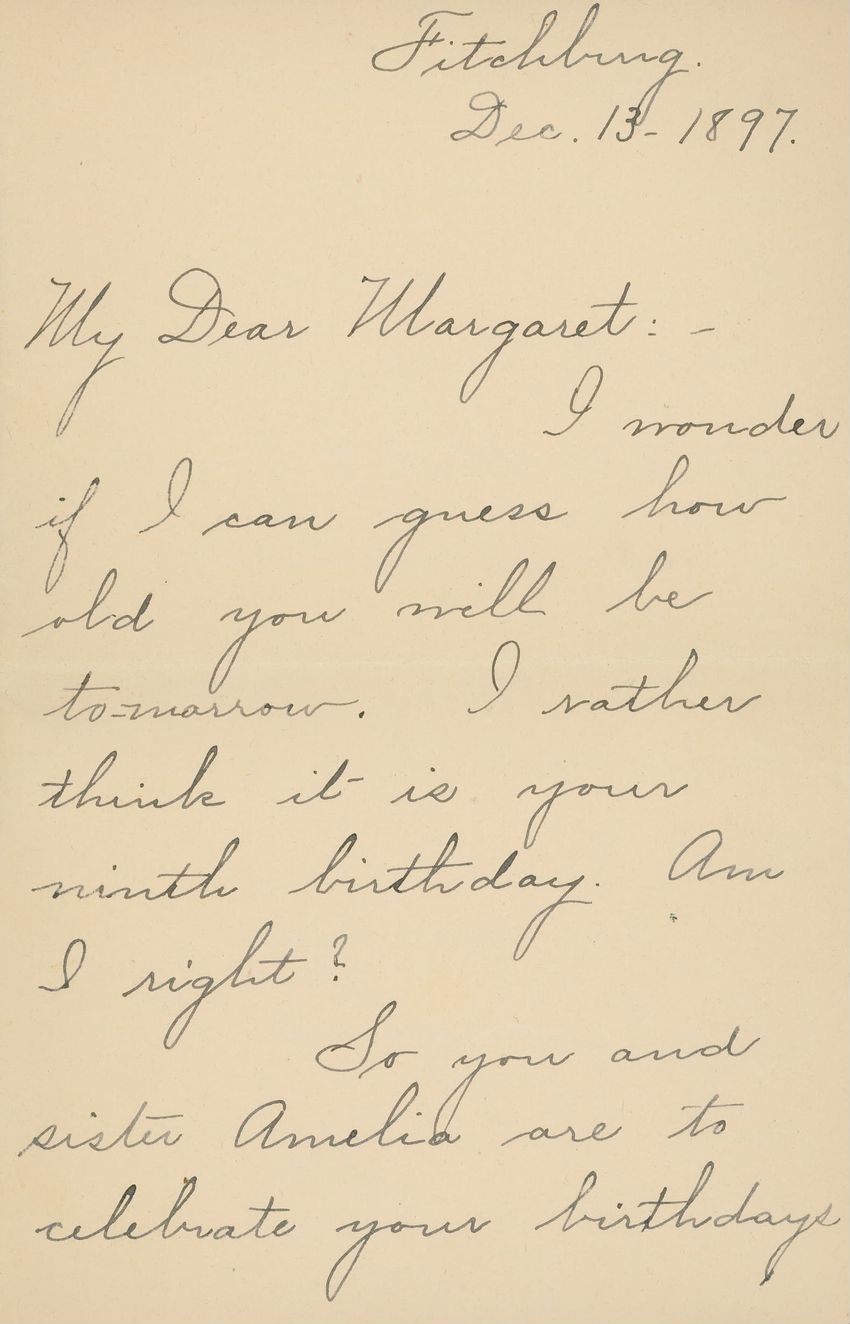 Fitchburg.
Dec. 13- 1897.
My Dear Margaret: -
I wonder
if I can guess how
old you will be
to-morrow. I rather
think it is your
ninth birthday. Am
I right?
So you and
sister Amelia are to
celebrate your birthdays